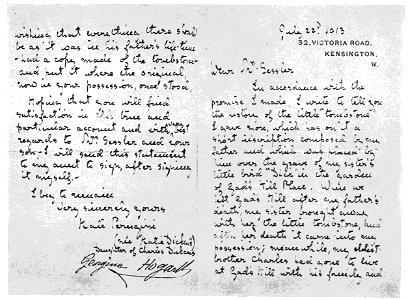 July 22nd, 1913
32, VICTORIA ROAD,
KENSINGTON,
W.
Dear Mr. Sessler
In accordance with the
promise I made, I write to tell you
the history of the little "tombstone"
I gave you, which has on it a
short inscription composed by my
father and which was placed by
him over the grave of my sister's
little bird "Dick" in the garden
of Gad's Hill Place. When we
left Gad's Hill after my father's
death, my sister brought away
with her the little tombstone, and
after her death it came into my
possession; meanwhile, my eldest
brother Charles had gone to live
at Gad's Hill with his family, and
wishing that everything there should
be as it was in his father's life-time
had a copy made of the tombstone
and put it where the original,
now in your possession, once stood.
Hoping that you will find
satisfaction in this true and
particular account and with very best
regards to Mrs. Sessler and your
son. I will send this statement
to my aunt to sign, after signing
it myself.
I beg to remain
Very sincerely yours
Kate Perugini
(née Katie Dickens)
Daughter of Charles Dickens
Georgina Hogarth